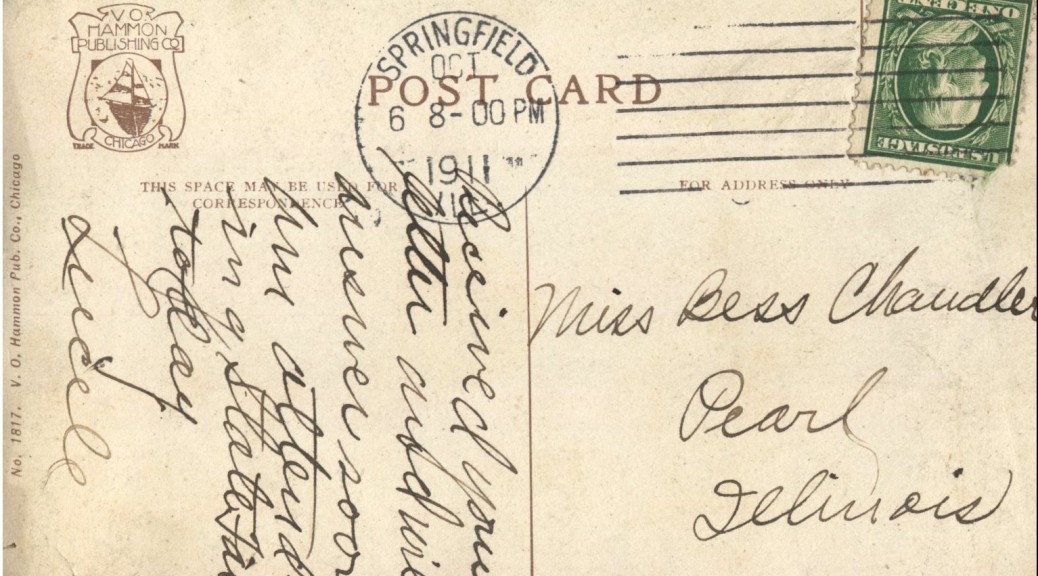 V.O.
HAMMON
PUBLISHING CO
CHICAGO
TRADE MARK
SPRINGFIELD
OCT
6 8-00 PM
1911
ILL.
POST CARD
ONE CENT
U.S. POSTAGE
THIS SPACE MAY BE USED FOR
CORRESPONDENCE
FOR ADDRESS ONLY
No. 1817. V. O. Hammon Pub. Co., Chicago
Received your
letter and wi
answer soon
Am attend
ing State Fai
today
Miss Bess Chandler
Pearl
Illinois